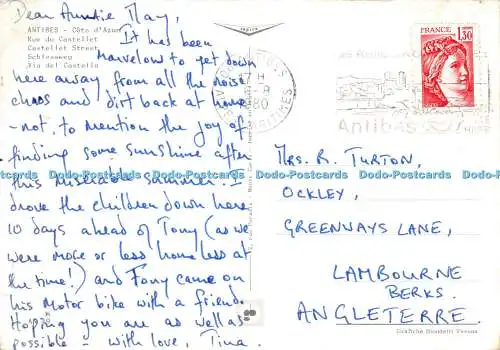 Dear Auntie May,
ANTIBES - Côte d'Azur
Rue du Castellet
Castellet Street
Schlessweg
Via del Castello
It has been
marvelous to get down
here away from all the noise
chaos and dirt back at home
- not, to mention the joy of
finding some sunshine after
this miserable summer. I
drove the children down here
10 days ahead of Tony (as we
were more or less homeless at
the time!) and Tony came on
his motor bike with a friend.
Hoping you are as well as
possible - with love, Tina.
FRANCE
1,30
17 H
1980
Antibes
MRS. R. TURTON,
OCKLEY,
GREENWAYS LANE,
LAMBOURNE
BERKS.
ANGLETERRE.
Dodo-Postcards Dodo-Postcards Dodo-Postcards Dodo-Postcards Dodo-Postcards